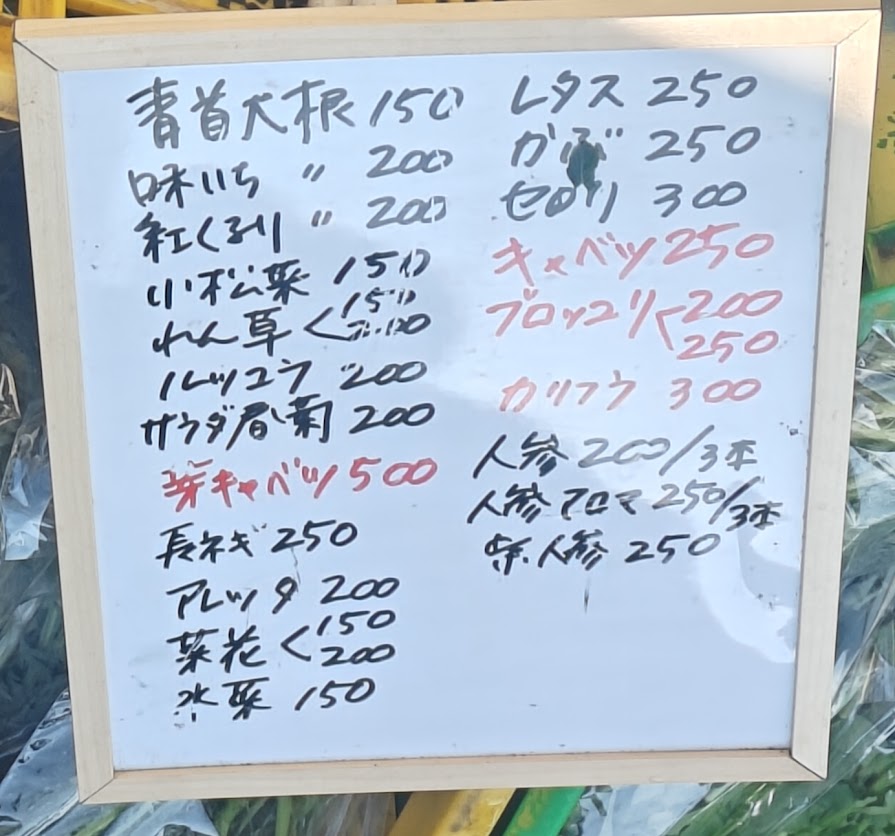 青首大根 150
味いち 〃 200
紅くるり 〃 200
小松菜 150
れん草 < 150
200
ルッコラ 200
サラダ春菊 200
芽キャベツ 500
長ネギ 250
アレッタ 200
菜花 < 150
200
水菜 150
レタス 250
かぶ 250
セロリ 300
キャベツ 250
ブロッコリ < 200
250
カリフラ 300
人参 200/3本
人参アロマ 250/3本
紫人参 250